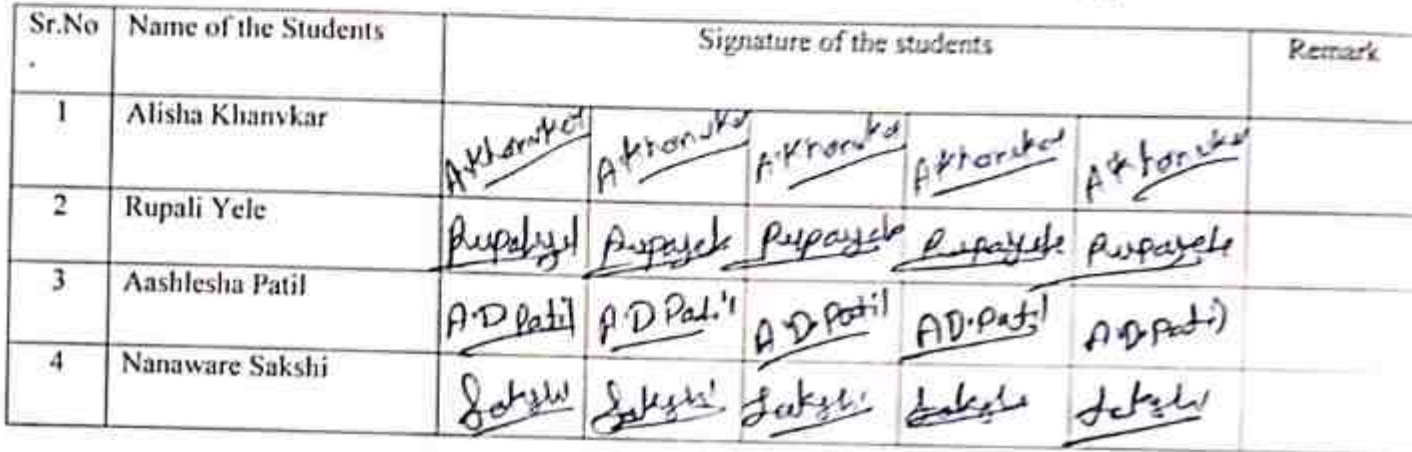 Sr.No Name of the Students Signature of the students Remark
.
1 Alisha Khanvkar AKhanvkar AKhanvkar A.Khanvkar AKhanvkar AKhanvkar
2 Rupali Yele Rupaliyel Rupayele Rupayele Rupayele Rupayele
3 Aashlesha Patil A.D Patil A.D Patil A.D.Patil A.D.Patil A.D.Patil
4 Nanaware Sakshi Sakshi Sakshi Sakshi Sakshi Sakshi